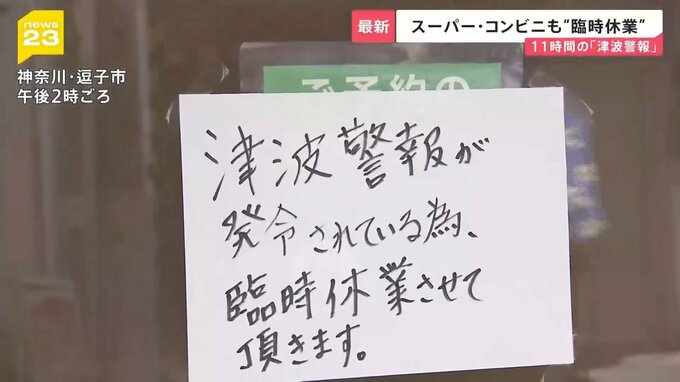 news
23
最新
スーパー・コンビニも“臨時休業”
11時間の「津波警報」
神奈川・逗子市
午後2時ごろ
ご予約の
津波警報が
発令されている為、
臨時休業させて
頂きます。